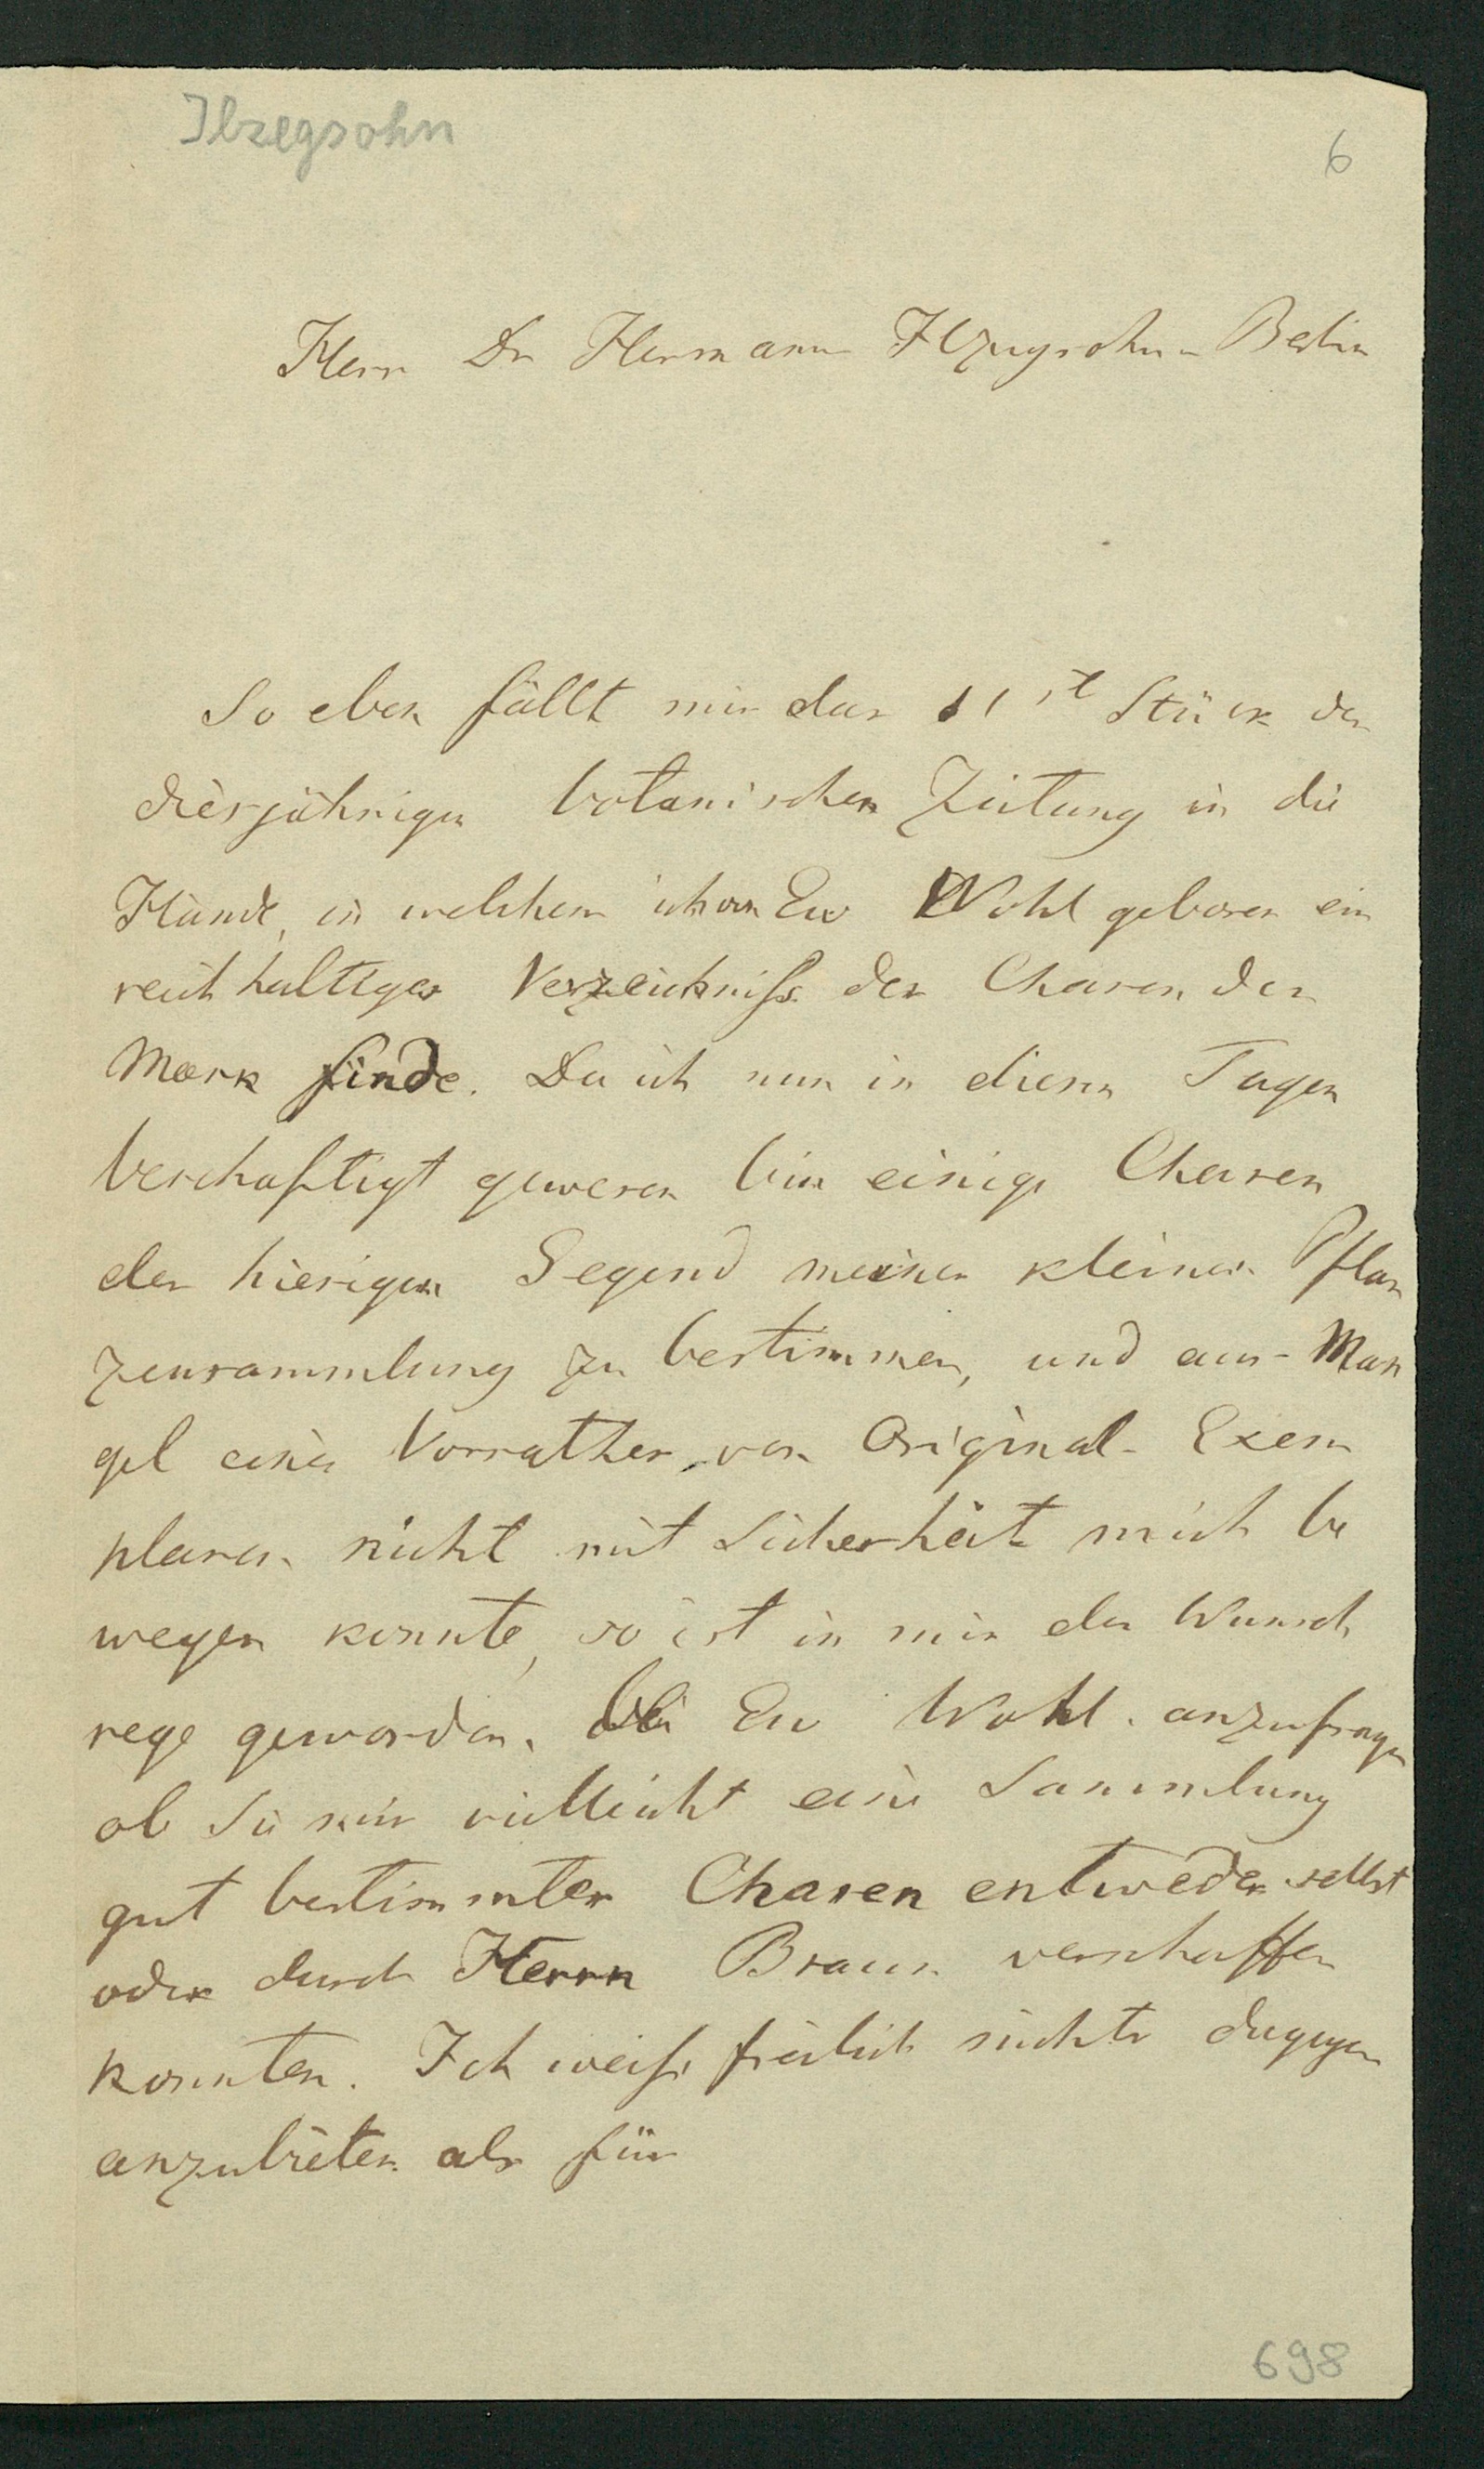 Ilzegsohn
6
Herr Dr Hermann Itzigsohn - Berlin
So eben fällt mir das 11st Stück der
diesjährigen botanischen Zeitung in die
Hände, in welchem ich von Ew Wohlgeboren ein
reichhaltiges Verzeichniss der Charen der
Mark finde. Da ich nun in diesen Tagen
beschaftigt gewesen bin einige Charen
der hiesigen Gegend meiner kleinen Pflan
zensammlung zu bestimmen, und aus Man
gel eines Vorrathes von Original-Exem
plaren nicht mit Sicherheit mich be
wegen konnte, so ist in mir der Wunsch
rege geworden, bei Ew Wohl. anzufragen
ob Sie mir vielleicht eine Sammlung
gut bestimmter Charen entweder selbst
oder durch Herrn Braun verschaffen
konnten. Ich weiss freilich nichts dagegen
anzubieten als für
698